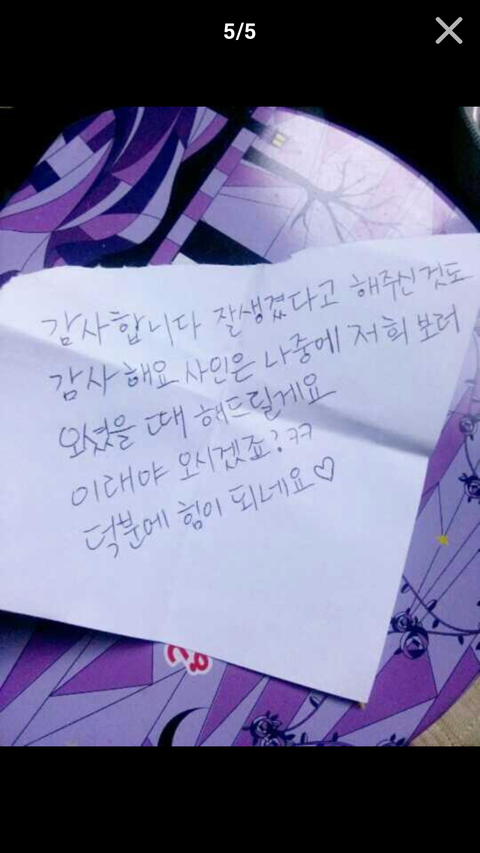 5/5
감사합니다 잘생겼다고 해주신것도
감사해요 사인은 나중에 저희 보러
오셨을 때 해드릴게요
이래야 오시겠죠?ㅋㅋ
덕분에 힘이 되네요♡